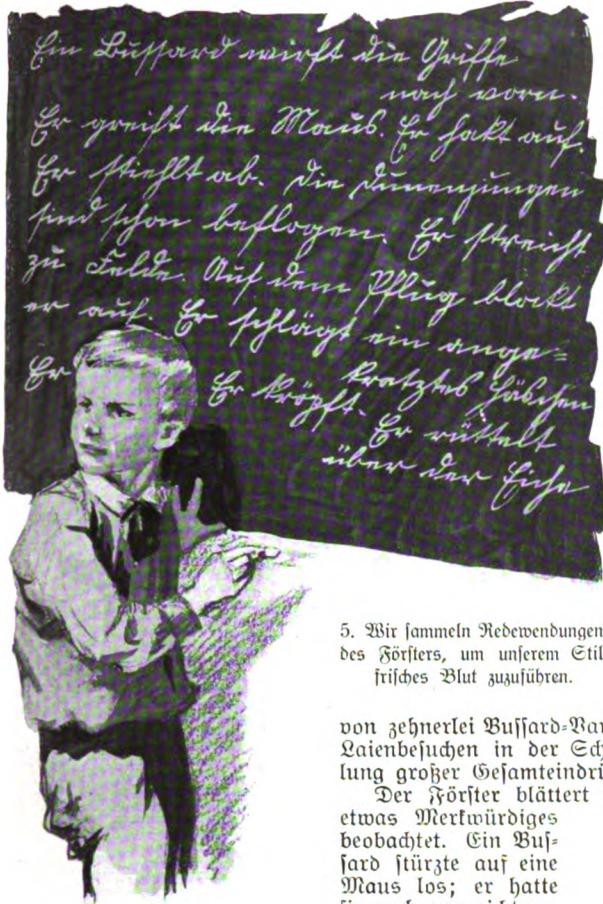 Ein Bussard wirft die Griffe
nach vorn.
Er greift die Maus. Er hakt auf.
Er stiehlt ab. Die Dunenjungen
sind schon beflogen. Er streicht
zu Felde. Auf dem Pflug blockt
er auf. Er schlägt ein ange=
kratztes Häschen
Er Er kröpft. Er rüttelt
über der Eiche
5. Wir sammeln Redewendungen
des Försters, um unserem Stil
frisches Blut zuzuführen.
von zehnerlei Bussard-Var
Laienbesuchen in der Sch
lung großer Gesamteindrü
Der Förster blättert
etwas Merkwürdiges
beobachtet. Ein Bus-
sard stürzte auf eine
Maus los; er hatte